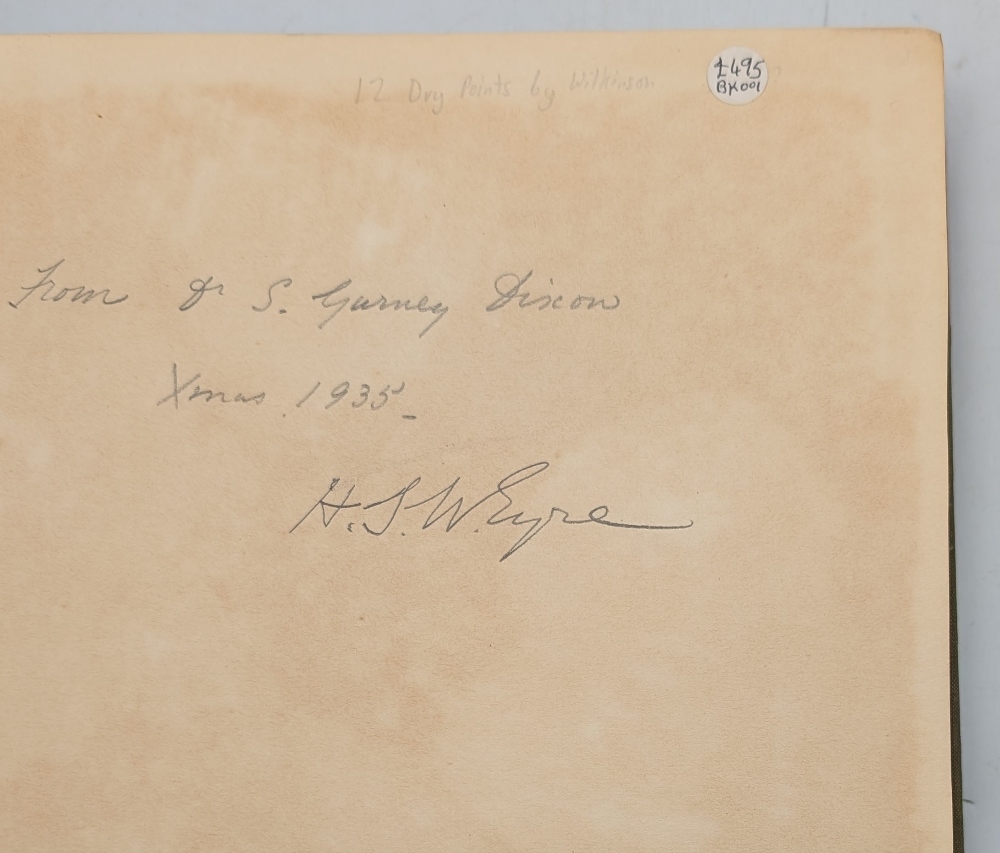 12 Dry Points by Wilkinson
£495
BK001
From Dr S. Gurney Dixon
Xmas. 1935_
H.S.W.Eyre